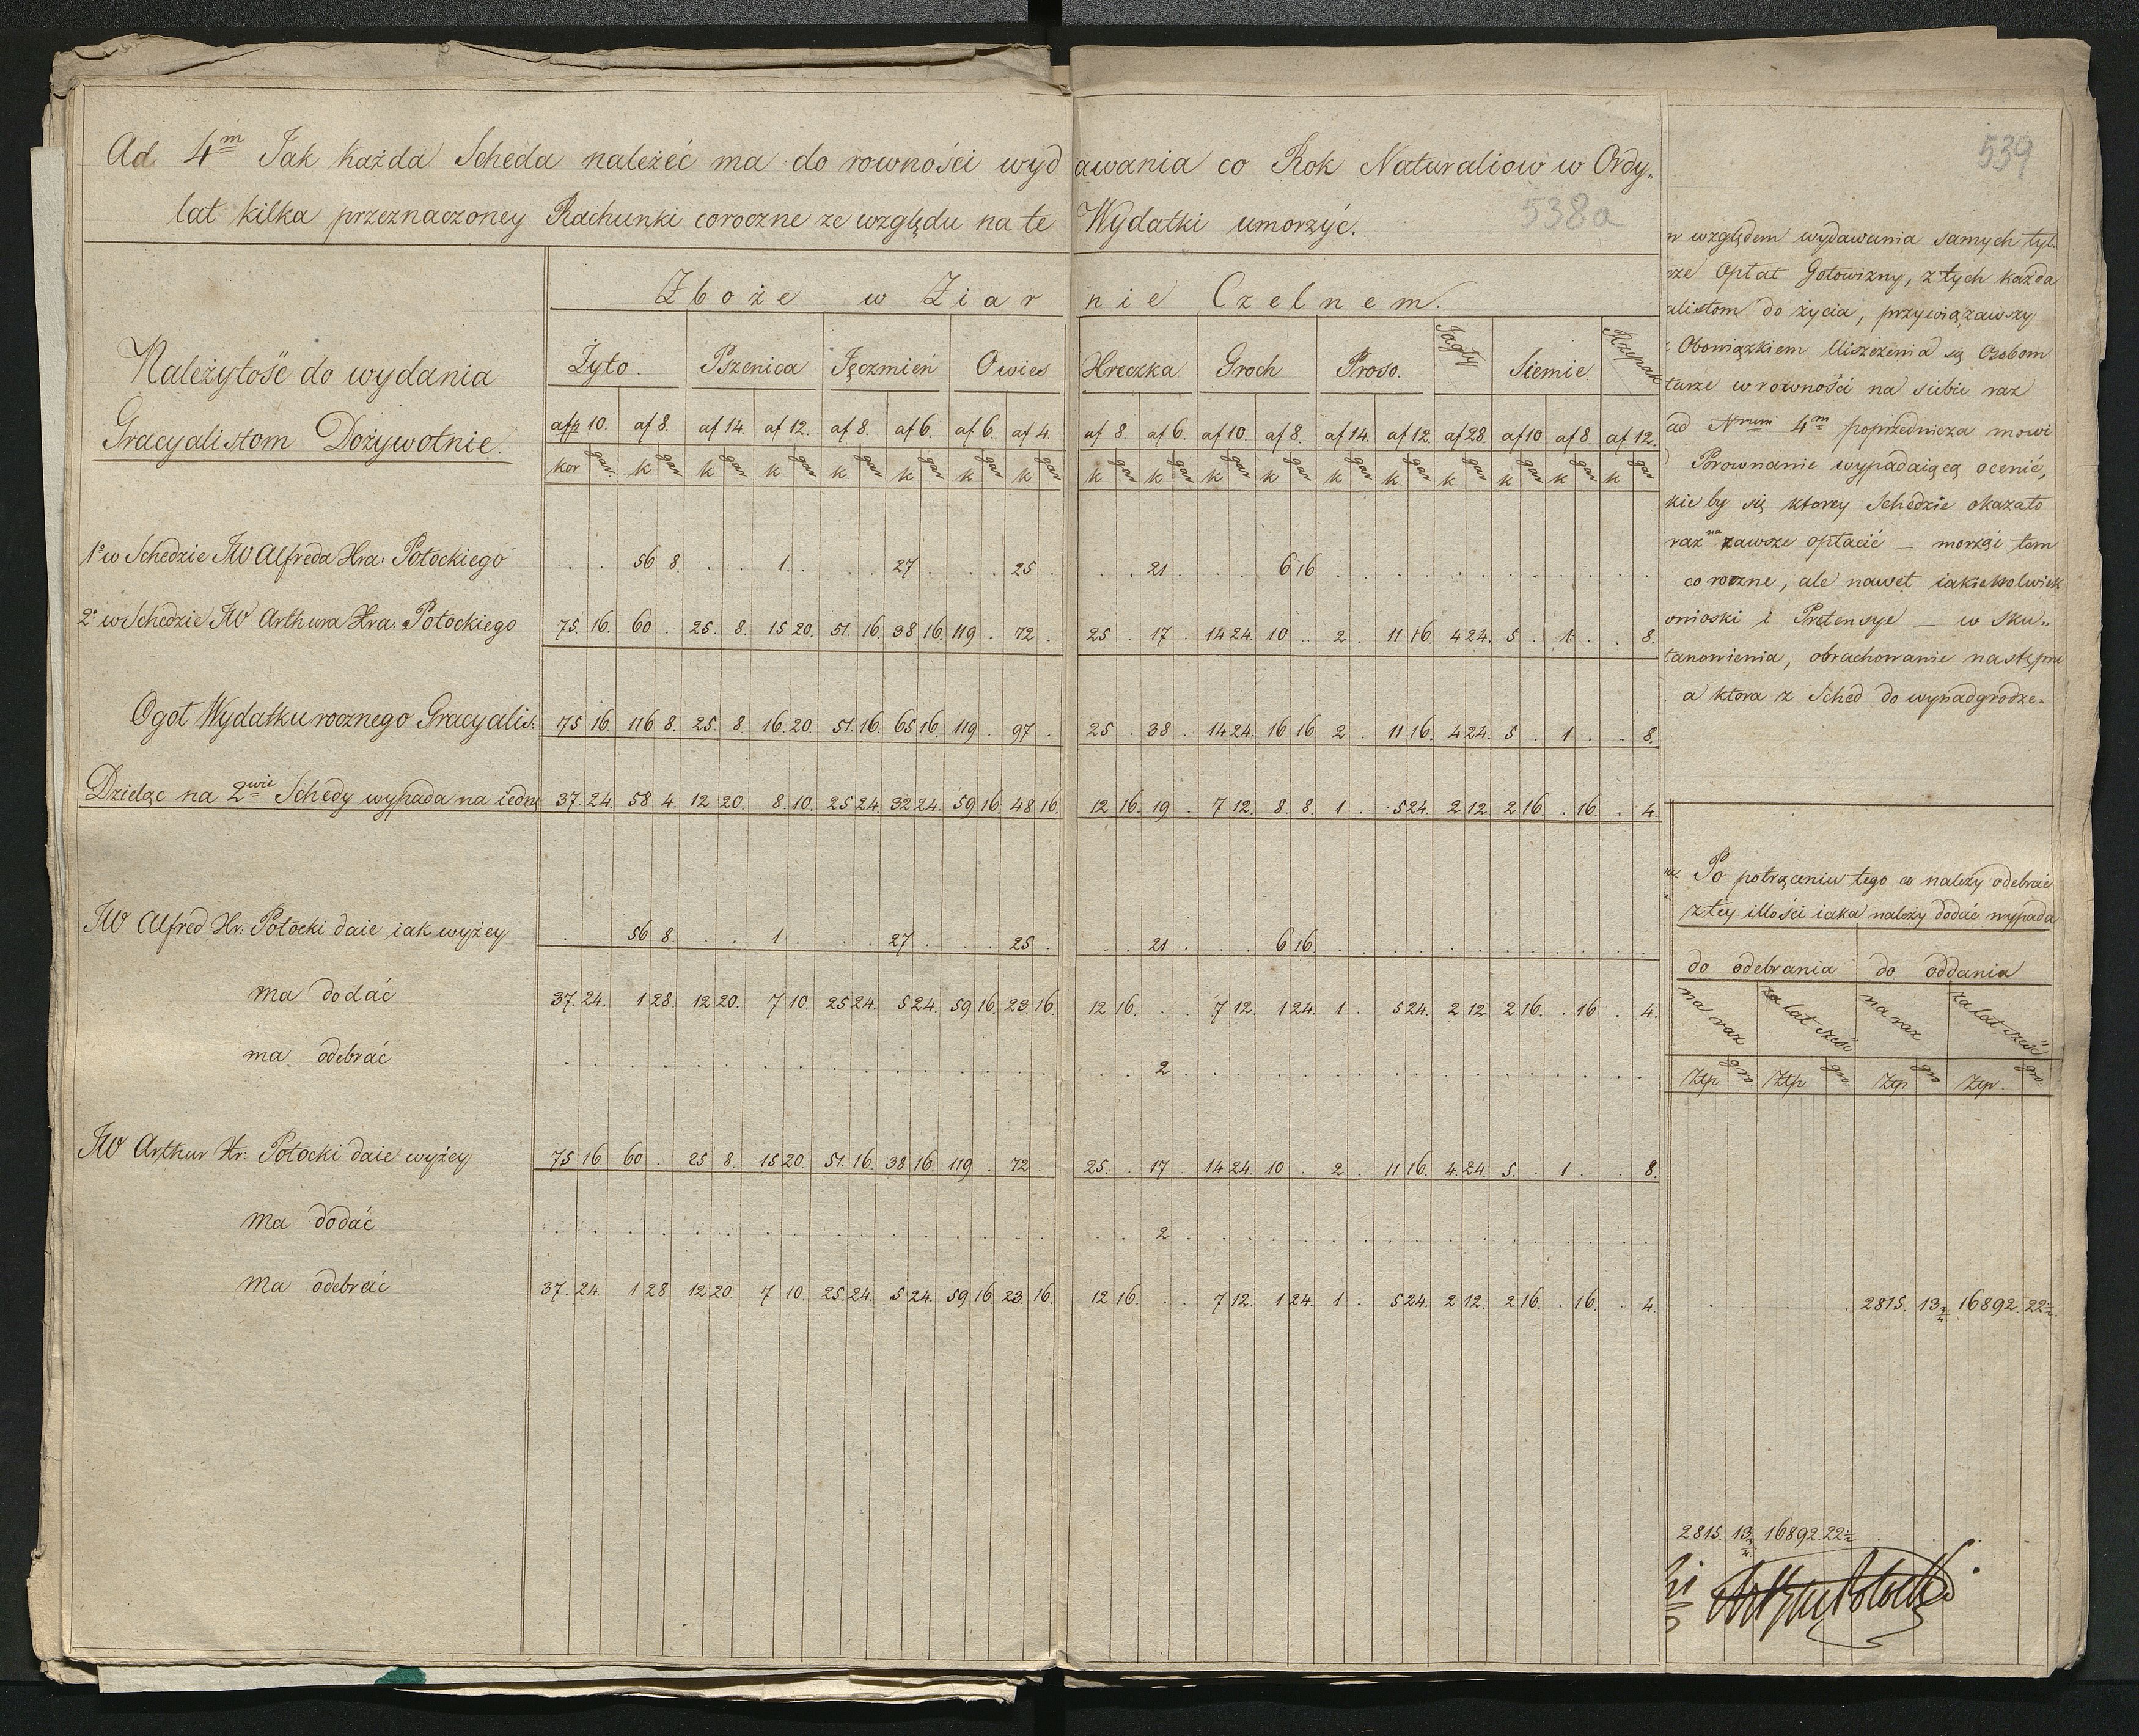 Ad 4m Jak każda Scheda należeć ma do rowności wydawania co Rok Naturaliow w Ordy„
lat kilka przeznaczoney Rachunki coroczne ze względu na te Wydatki umorzyć.
538a
539
Należytość do wydania
Gracyalistom Dożywotnie.
Zboże w Ziarnie Czelnem.
Żyto. Pszenica Jęczmień Owies Hreczka Groch Proso. Jagły Siemie Rzepak
afp 10. af 8. af 14. af 12. af 8. af 6. af 6. af 4. af 8. af 6. af 10. af 8. af 14. af 12. af 28. af 10. af 8. af 12.
kor gar. k gar k gar k gar k gar k gar k gar k gar k gar k gar k gar k gar k gar k gar k gar k gar k gar k gar
1o w Schedzie JW Alfreda Hra: Potockiego . . 56 8. . . 1. . . . 27 . . . 25 . . . 21 . . . 6 16 . . . . . . . . . . . .
2o w Schedzie JW Arthura Hra: Potockiego 75. 16. 60 . 25. 8. 15 20. 51. 16. 38 16. 119 . 72 . 25 . 17 . 14 24. 10 . . 2 . 11 16. 4 24. 5 . 1. . . 8.
Ogoł Wydatku rocznego Gracyalis. 75 16. 116 8. 25. 8. 16. 20. 51. 16. 65 16. 119 . 97 . 25 . 38 . 14 24. 16 16 2 . 11 16. 4 24. 5 . 1 . . 8.
Dzieląc na 2wie Schedy wypada na iedną 37. 24. 58 4. 12 20. 8. 10. 25 24 32 24. 59 16. 48 16. 12 16. 19 . 7 12. 8. 8. 1 . . 5 24. 2 12. 2 16 . 16. . 4.
JW Alfred Hr: Potocki daie iak wyżey . . 56 8. . . 1 . . . 27 . . . 25 . . . 21 . . . 6 16. . . . . . . . . . . .
ma dodać 37. 24. 1 28. 12 20. 7 10. 25 24. 5 24. 59 16. 23. 16. 12 16. . . 7 12. 1 24. 1 . 5 24. 2 12 2 16. . 16 . 4.
ma odebrać . . . . . . . . . . . . . . . . . . 2 . . . . . . . . . . . . . . .
JW Arthur Hr: Potocki daie wyżey 75 16. 60 . 25 8. 15 20. 51. 16. 38 16. 119 . 72 . 25. . 17 . 14 24. 10 . 2 . 11 16. 4. 24. 5. . 1 . . 8.
ma dodać . . . . . . . . . . . . . . . . . . 2 . . . . . . . . . . . . . . .
ma odebrać 37. 24. 1 28 12 20. 7 10. 25. 24. 5 24. 59 16. 23. 16. 12 16. . . 7 12. 1 24. 1 . 5 24. 2 12. 2 16. . 16. . 4. . . . . . 2815. 13 3/4 16892. 22 1/2.
względem wydawania samych tyl„
Opłat Gotowizny, z tych każda
alistom do życia, przywiązawszy
Obowiązkiem Uiszczenia się Osobom
w rowności na siebie raz
ad Nrum 4m poprzednicza mowi
Porownanie wypadaiącą ocenić,
kie by się ktorey Schedzie okazało
raz na zawsze opłacić — morzyć tem
coroczne, ale nawet iakiekolwiek
onioski i Pretensye — w sku„
tanowienia, obrachowanie następne
a ktora z Sched do wynadgrodze„
Po potrąceniu tego co należy odebrać
z tey illości iaka należy dodać wypada
do odebrania do oddania
na raz za lat sześć na raz za lat sześć
Złp gro. Złp gro. Złp gro Złp. gro.
2815. 13 3/4. 16892 22 1/2 . . .
Arthur Potocki